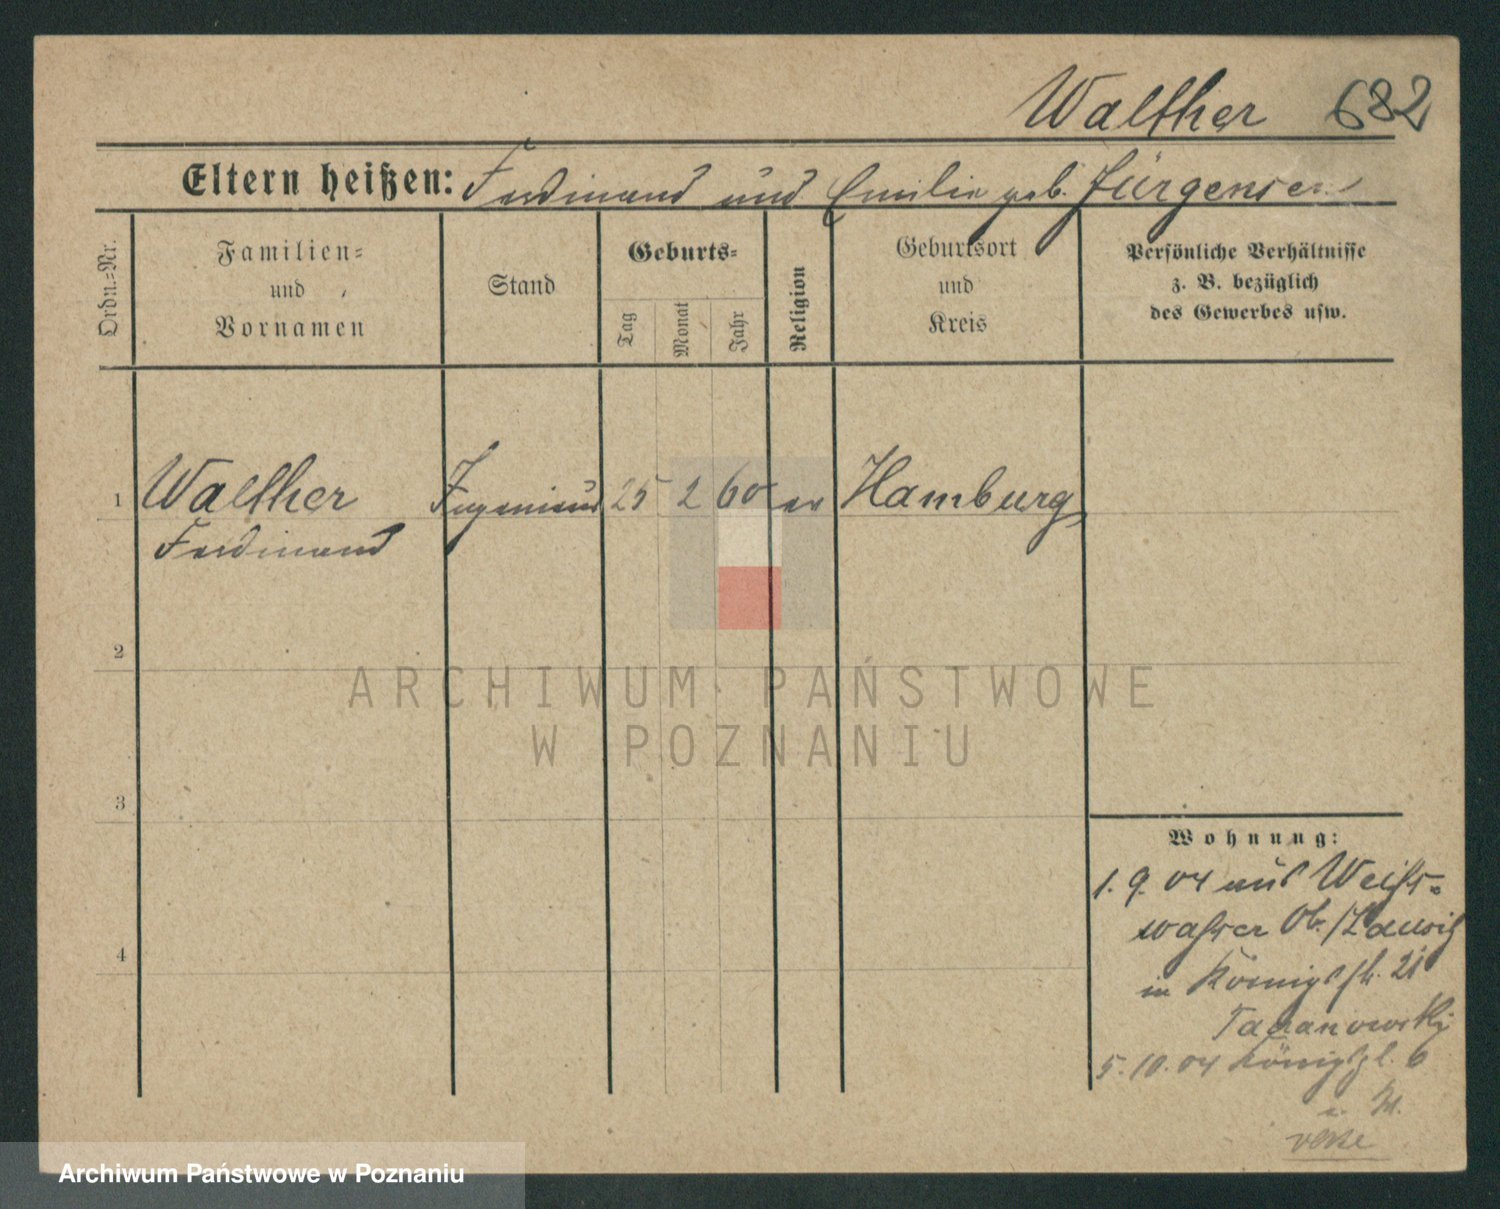 Walther 682
Eltern heißen: Ferdinand und Emilie geb. Jürgensen
Ordn.=Nr.
Familien=
und
Vornamen
Stand
Geburts=
Tag
Monat
Jahr
Religion
Geburtsort
und
Kreis
Persönliche Verhältnisse
z. B. bezüglich
des Gewerbes usw.
1 Walther Ingenieur 25 2 60 ev Hamburg
Ferdinand
2
3
4
Wohnung:
1. 9. 04 aus Weiß=
wasser Ob./Lausitz
in Königstr. 21
5. 10. 04 Königspl. 6
ARCHIWUM PAŃSTWOWE
W POZNANIU
Archiwum Państwowe w Poznaniu